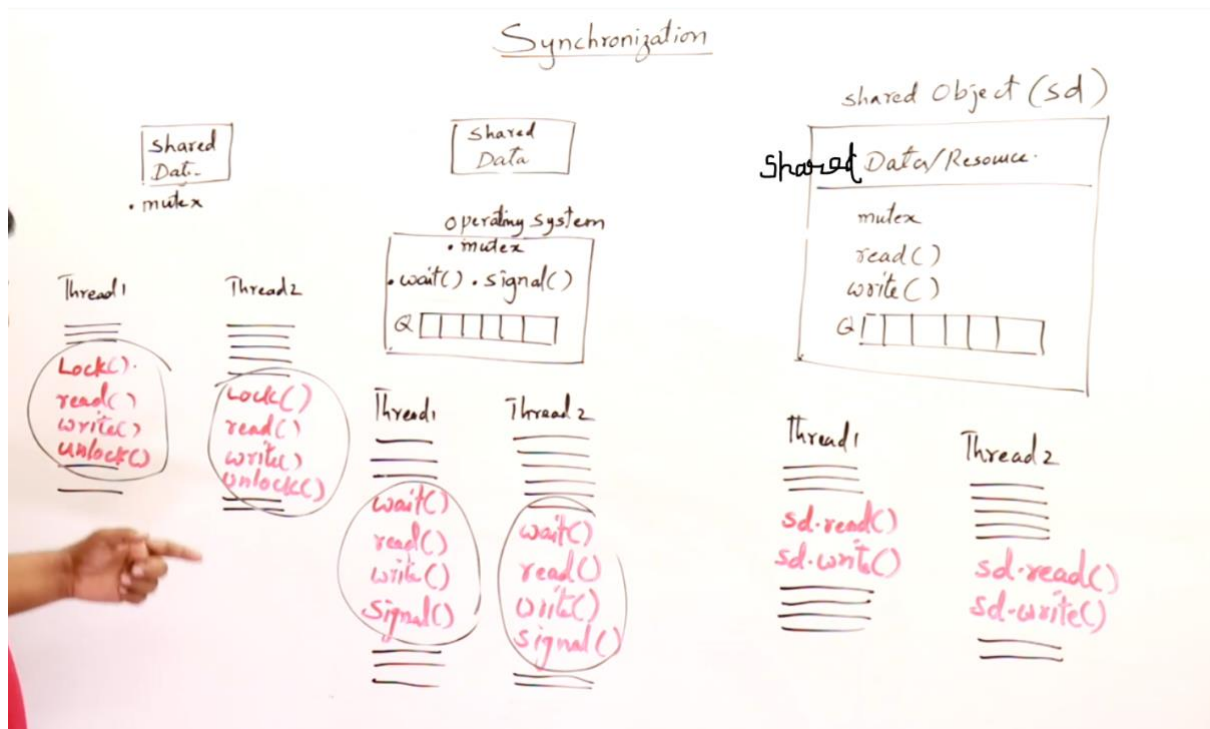 Synchronization
shared
Dat-
• mutex
Thread1
Lock().
read()
write()
unlock()
Thread2
Lock()
read()
write()
unlock()
shared
Data
operating system
• mutex
• wait() • signal()
Q
Thread1
wait()
read()
write()
signal()
Thread2
wait()
read()
write()
signal()
shared Object (sd)
Shared Data/Resource.
mutex
read()
write()
Q
Thread1
sd.read()
sd.write()
Thread2
sd.read()
sd.write()